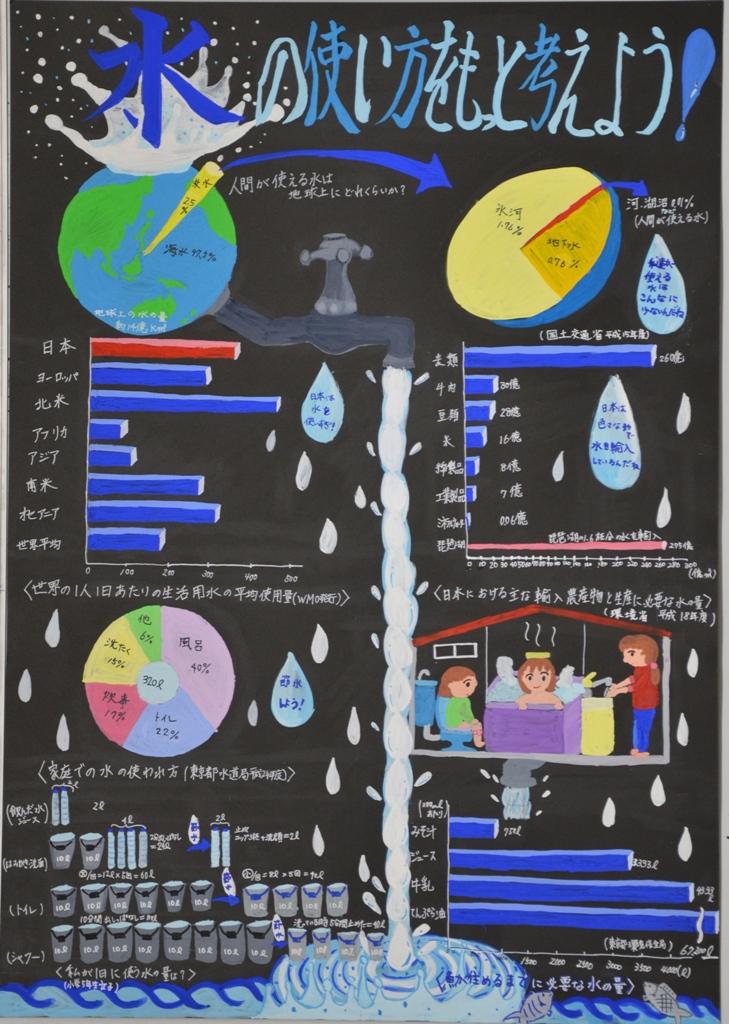 水の使い方をもっと考えよう!
人間が使える水は
地球上にどれくらいか?
淡水
2.5
%
海水 97.5%
地球上の水の量
約14億km³
氷河
1.76%
地下水
0.76%
河・湖沼 0.01%
(人間が使える水)
使える
水は
こんなに
少ないんだね
(国土交通省 平成15年度)
日本
ヨーロッパ
北米
アフリカ
アジア
南米
オセアニア
世界平均
0 100 200 300 400 500
日本は
水を
使いすぎ!
<世界の1人1日あたりの生活用水の平均使用量(WMO発行)>
麦類 260億
牛肉 30億
豆類 28億
米 16億
綿製品 8億
工業製品 7億
0.06億
琵琶湖
日本は
色々な物で
水を輸入
しているんだね
<日本における主な輸入農産物と生産に必要な水の量>
(環境省 平成18年度)
風呂
40%
トイレ
22%
炊事
17%
洗たく
15%
他
6%
320ℓ
節水
しよう!
<家庭での水の使われ方(東京都水道局平成24年度)>
(飲んだ水)
ジュース
2ℓ
(はみがき洗面)
10ℓ 10ℓ
4ℓ
2ℓ
(トイレ)
大1台=12ℓ×5回=60ℓ
10ℓ 10ℓ 10ℓ 10ℓ 10ℓ 10ℓ
10ℓ 10ℓ 10ℓ 10ℓ
(シャワー)
10ℓ 10ℓ 10ℓ 10ℓ 10ℓ 10ℓ 10ℓ 10ℓ
10ℓ 10ℓ 10ℓ 10ℓ
<私が1日に使う水の量は?>
(小学5年生女子)
(200mℓ
あたり)
みそ汁 750ℓ
ジュース
牛乳
てんぷら油
1500 2000 2500 3000 3500 4000(ℓ)
<魚が住めるまでに必要な水の量>